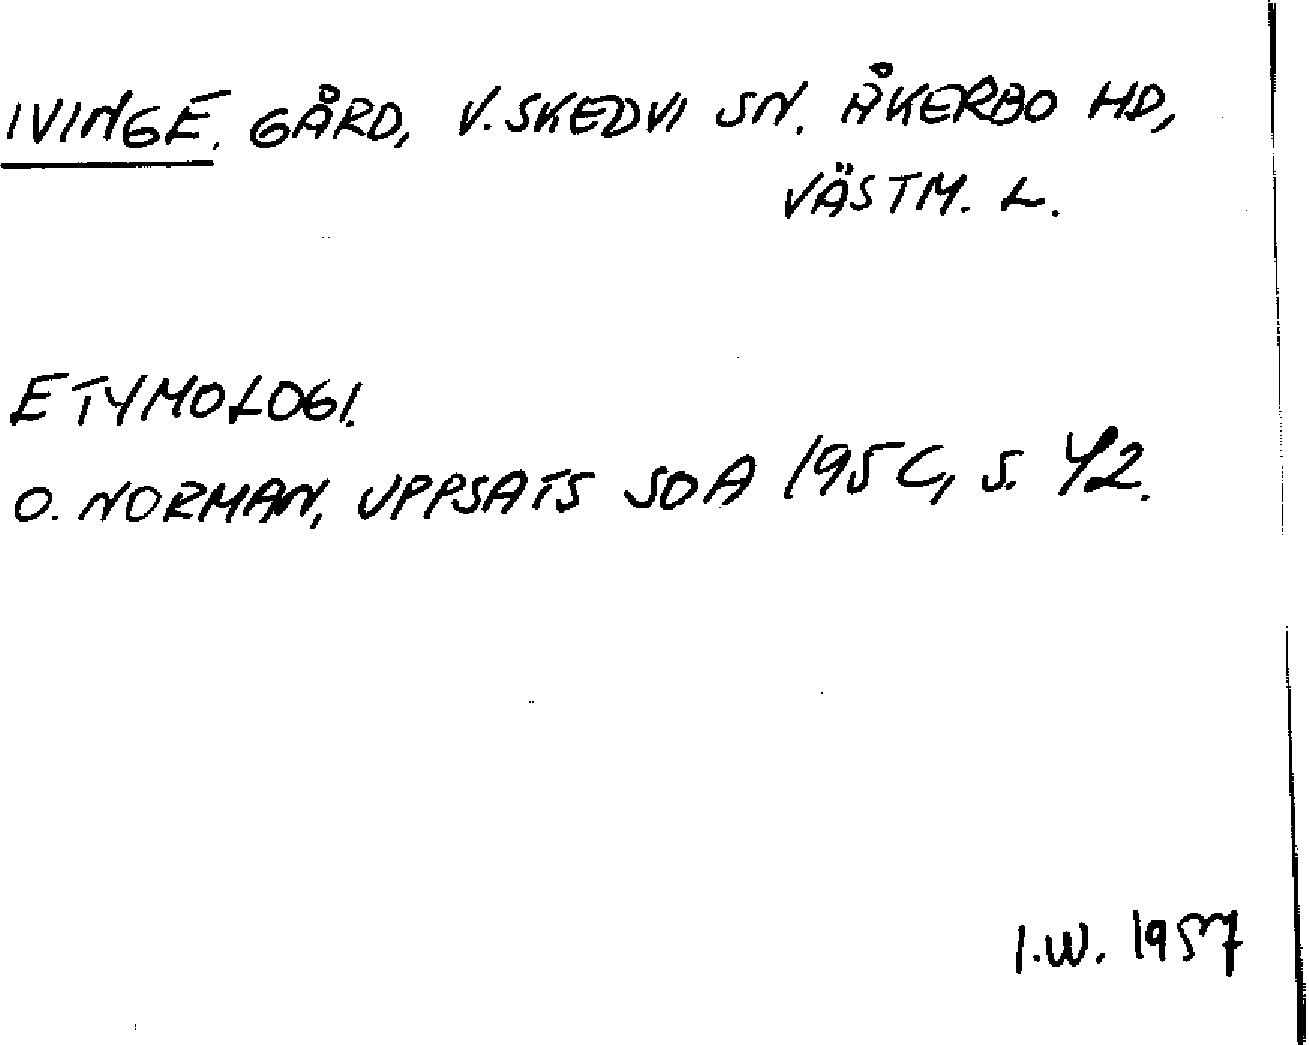 IVINGE. GÅRD, V. SKEDVI SN. ÅKERBO HD,
VÄSTM. L.
ETYMOLOGI.
O. NORMAN, UPPSATS SOA 1956, S. 42.
I.W. 1957